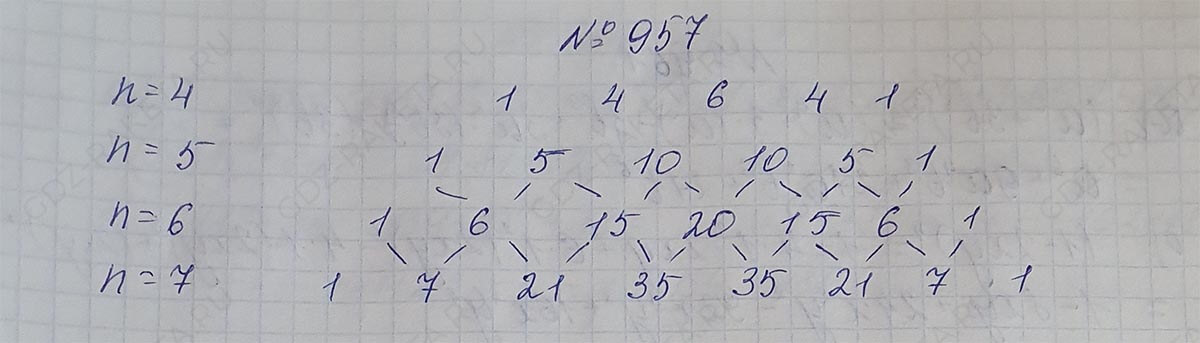 № 957
n = 4 1 4 6 4 1
n = 5 1 5 10 10 5 1
n = 6 1 6 15 20 15 6 1
n = 7 1 7 21 35 35 21 7 1